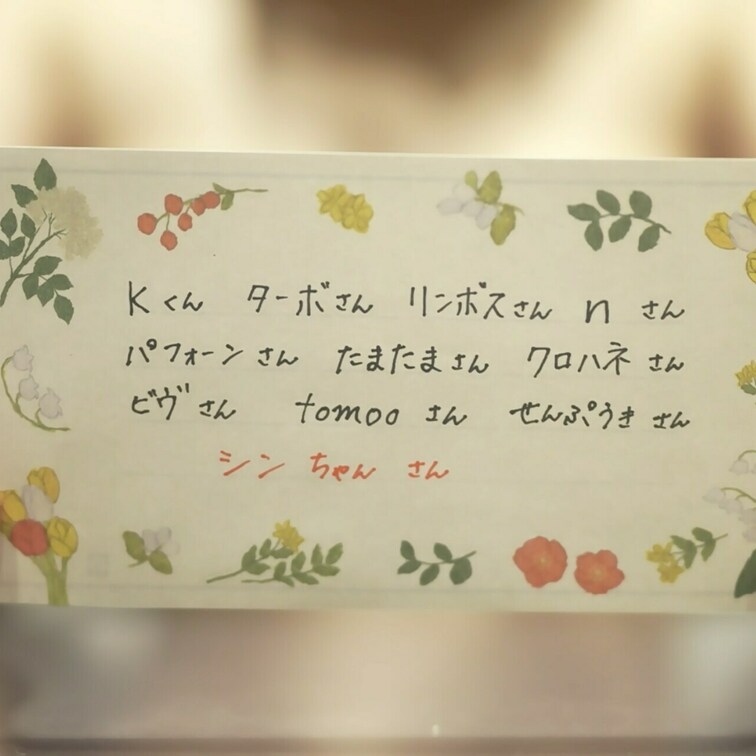 Kくん ターボさん リンボスさん n さん
パフォーン さん たまたまさん クロハネ さん
ビヴさん tomoo さん せんぷうき さん
シン ちゃん さん